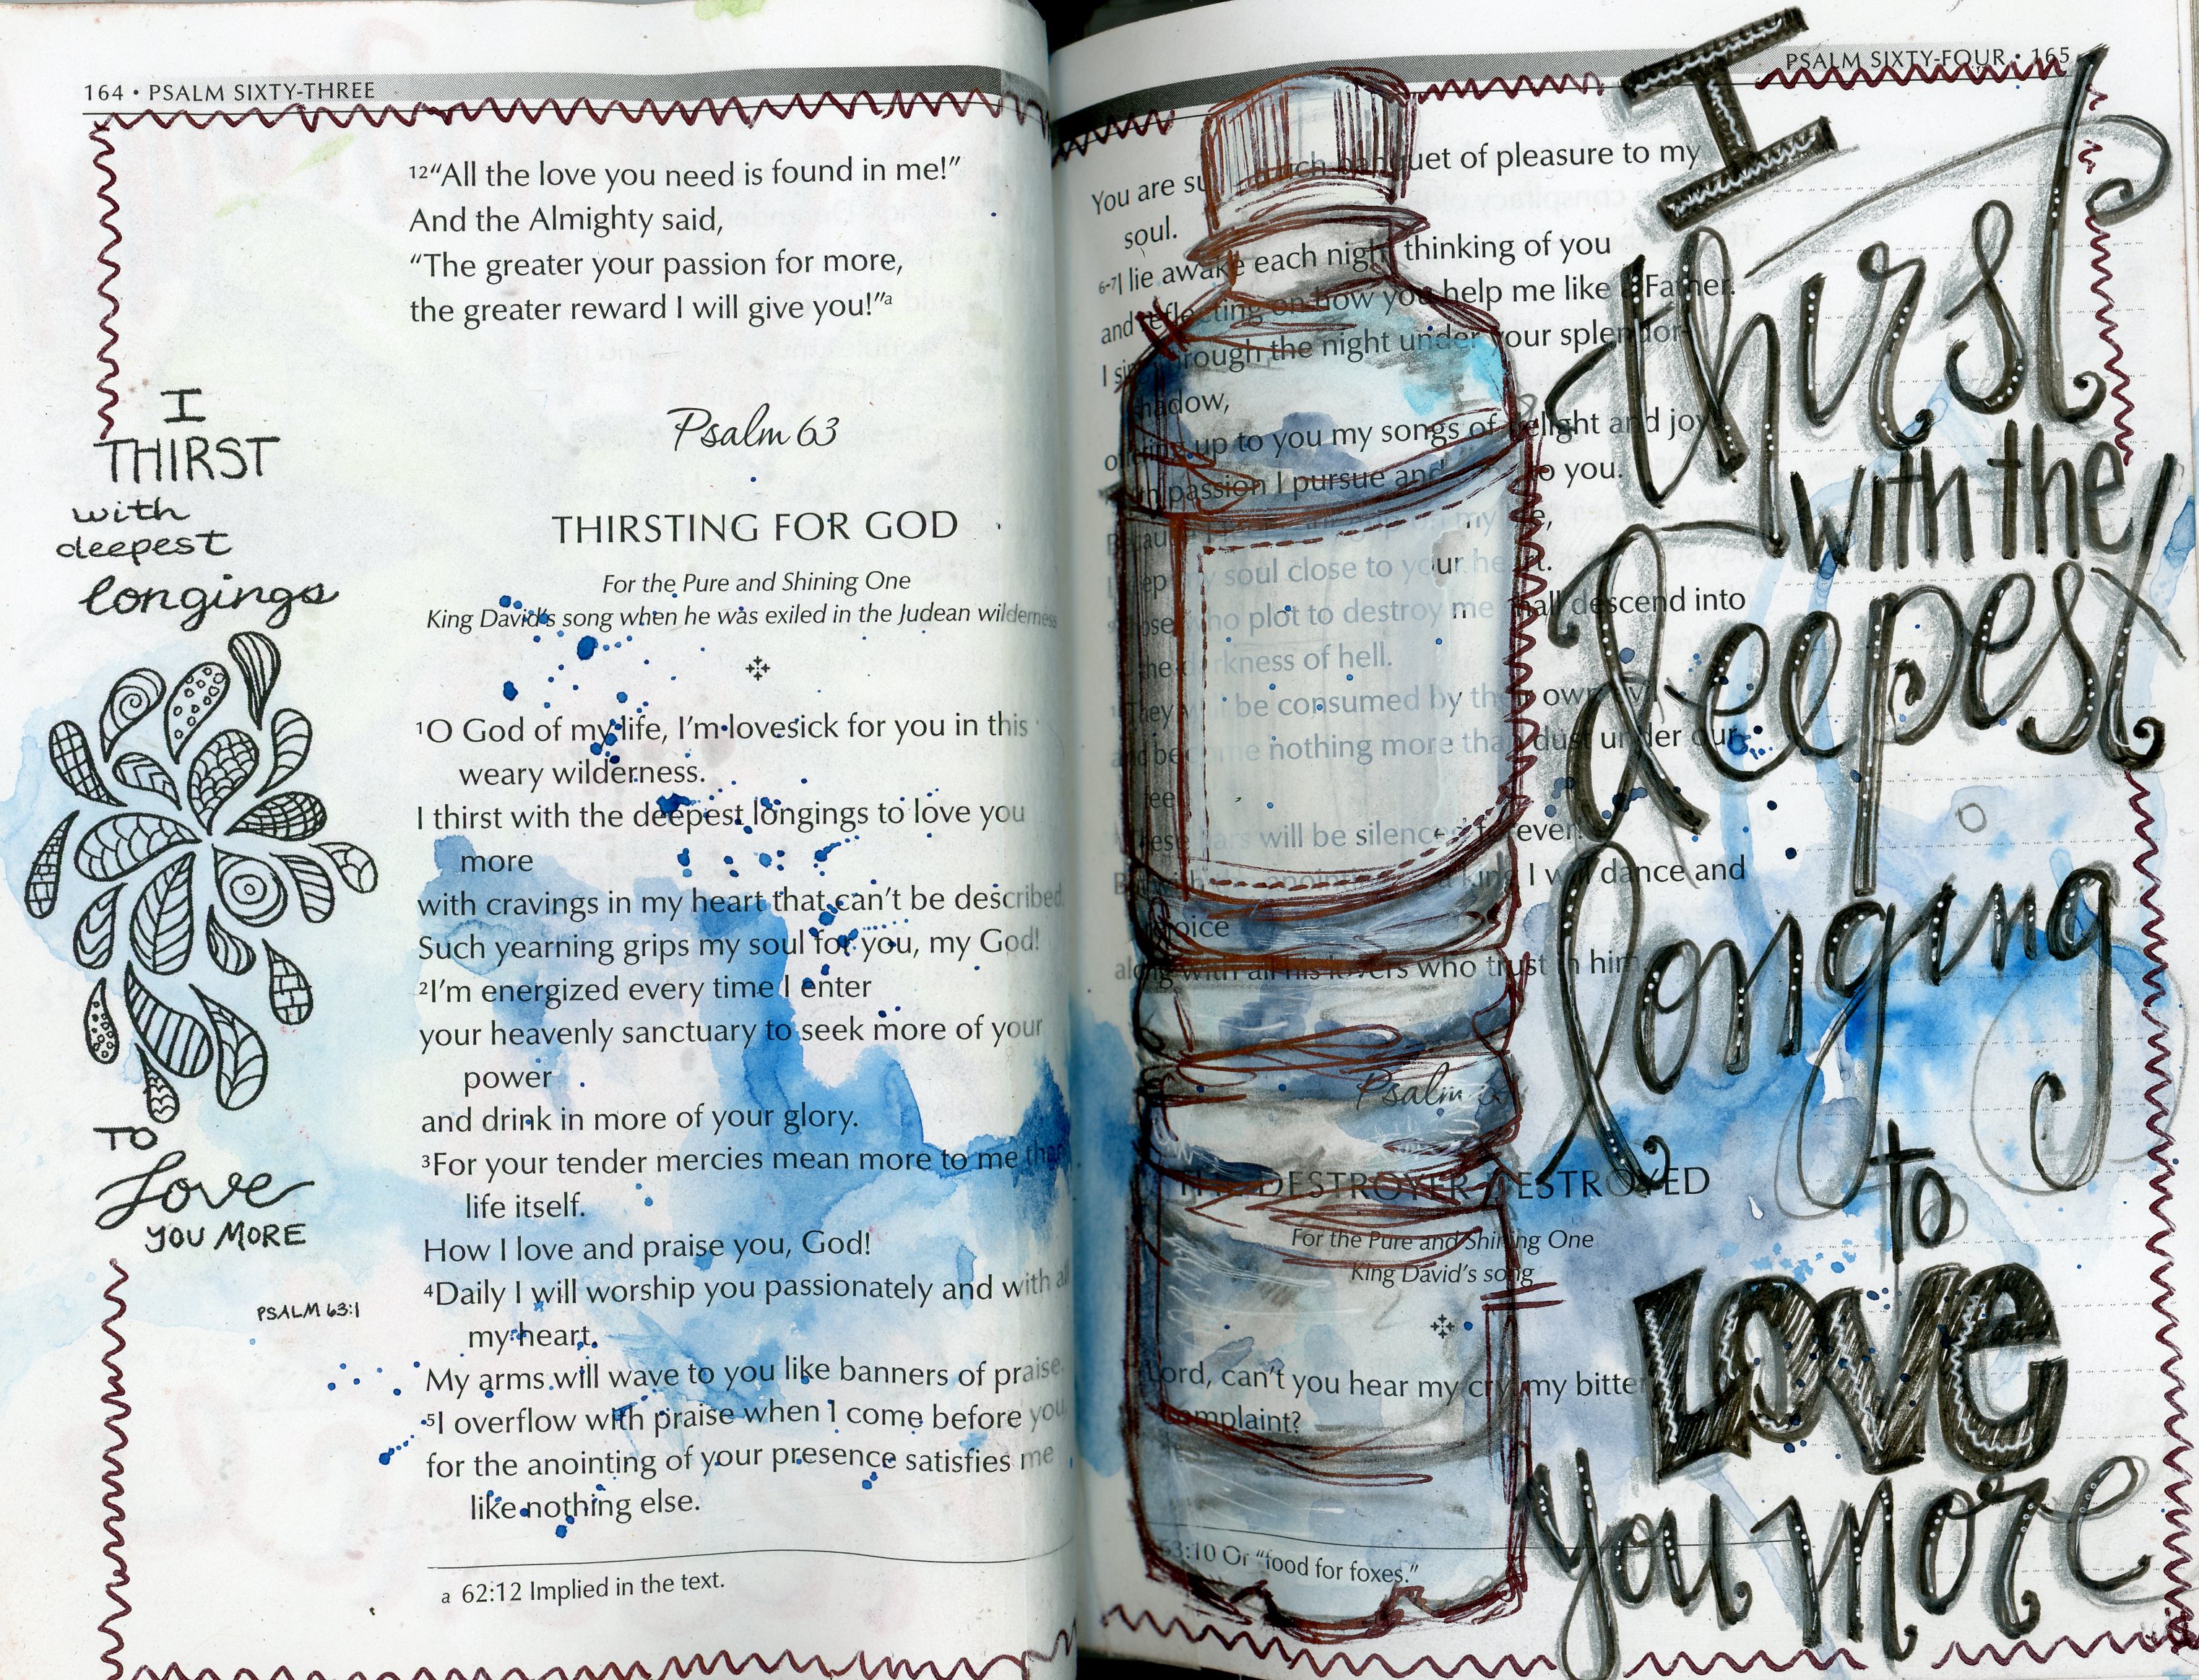 164 • PSALM SIXTY-THREE
12“All the love you need is found in me!”
And the Almighty said,
“The greater your passion for more,
the greater reward I will give you!”a
Psalm 63
THIRSTING FOR GOD
For the Pure and Shining One
King David’s song when he was exiled in the Judean wilderness
1O God of my life, I’m lovesick for you in this
weary wilderness.
I thirst with the deepest longings to love you
more
with cravings in my heart that can’t be described.
Such yearning grips my soul for you, my God!
2I’m energized every time I enter
your heavenly sanctuary to seek more of your
power
and drink in more of your glory.
3For your tender mercies mean more to me than
life itself.
How I love and praise you, God!
4Daily I will worship you passionately and with all
my heart.
My arms will wave to you like banners of praise.
5I overflow with praise when I come before you,
for the anointing of your presence satisfies me
like nothing else.
a 62:12 Implied in the text.
I
THIRST
with
deepest
longings
TO
Love
YOU MORE
PSALM 63:1
PSALM SIXTY-FOUR • 165
You are such a rich banquet of pleasure to my
soul.
6-7I lie awake each night thinking of you
and reflecting on how you help me like a Father.
I sing through the night under your splendor-
shadow,
offering up to you my songs of delight and joy
With passion I pursue and to you.
Because my life,
keep my soul close to your heart.
those who plot to destroy me shall descend into
the darkness of hell.
They will be consumed by their own
and become nothing more than dust under our
feet
These liars will be silenced forever!
But with the anointing of a king I will dance and
rejoice
along with all his lovers who trust in him.
Psalm 64
THE DESTROYER DESTROYED
For the Pure and Shining One
King David’s song
Lord, can’t you hear my cry, my bitter
complaint?
63:10 Or “food for foxes.”
I
thirst
with the
deepest
longing
to
LOVE
you more